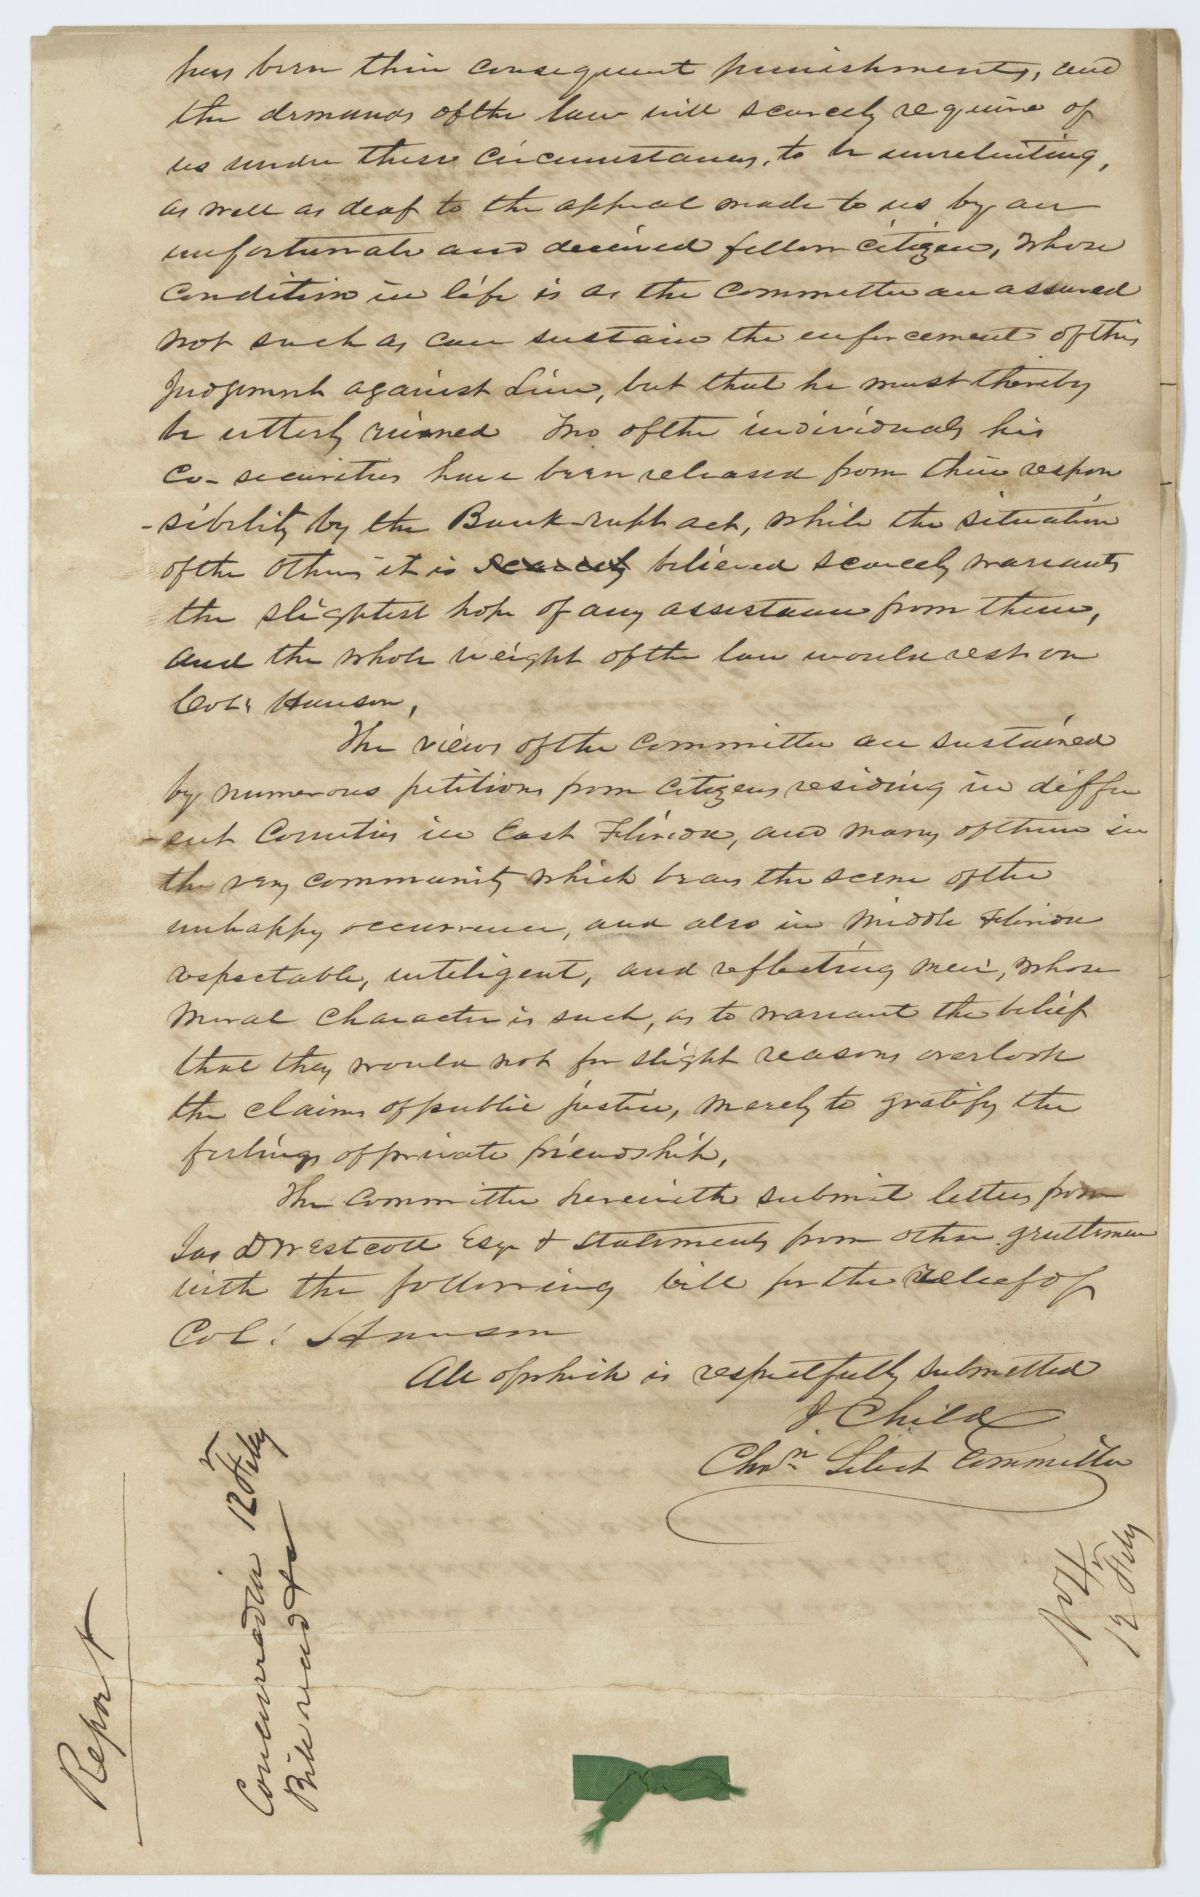 has been their consequent punishments, and
the demands of the law will scarcely require of
us under these circumstances, to be unrelenting,
as well as deaf to the appeal made to us by an
unfortunate and deceived fellow citizen, whose
condition in life is as the committee are assured
not such as can sustain the enforcement of this
Judgment against him, but that he must thereby
be utterly ruined Two of the individuals his
co-securities have been released from their respon
-sibility by the Bank-rupt act, while the situation
of the others it is scarcely believed scarcely warrants
the slightest hope of any assistance from them,
and the whole weight of the law would rest on
Col. Hanson,
The views of the committee are sustained
by numerous petitions from citizens residing in differ
-ent Counties in East Florida, and many of them in
the very community which bears the scene of the
unhappy occurrence, and also in Middle Florida
respectable, inteligent, and reflecting men, whose
Moral Character is such, as to warrant the belief
that they would not for slight reasons overlook
the claims of public justice, merely to gratify the
feelings of private friendship.
The committee herewith submit letters from
Jas D Westcott Esqr & statements from other gentlemen
with the following bill for the relief of
Col. Hanson
All of which is respectfully submitted
J. Child
Chrmn Select Committee
No 4
12 Feby
Concurred in 12 Feby
Bill read
Report